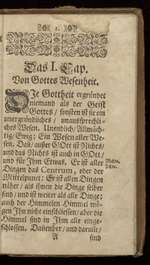 Das I. Cap.
Von Gottes Wesenheit.
DJe Gottheit ergründet
niemand als der Geist
Gottes, sonsten ist sie ein
unergründliches, unaussprechli-
ches Wesen. Unendlich, Allmäch-
tig, Ewig; Ein Wesen aller We-
sen. Daß ausser GOtt ist Nichts,
und das Nichts ist auch in GOtt,
und für Ihm Etwas. Er ist aller
Dingen das Centrum, oder der
Mittelpunct; Er ist allen Dingen
näher, als ihnen die Dinge selber
sind, und ist weiter als alle Dinge;
auch der Himmelen Himmel mö-
gen Ihn nicht einschliessen, aber die
Himmel sind in Ihm alle einge-
schlossen. Dahenher, und darum,
A sind